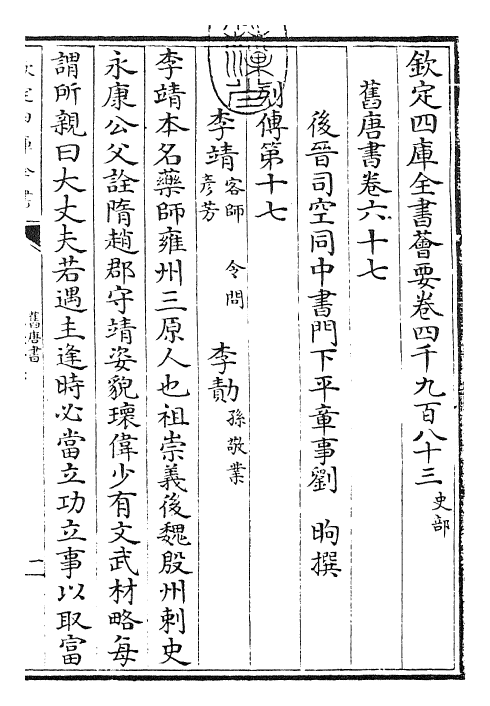 欽定四庫全書薈要卷四千九百八十三 史部
舊唐書卷六十七
後晉司空同中書門下平章事劉 昫撰
列傳第十七
李靖 客師 彦芳 令問 李勣 孫敬業
李靖本名藥師雍州三原人也祖崇義後魏殷州刺史
永康公父詮隋趙郡守靖姿貌瓌偉少有文武材略每
謂所親曰大丈夫若遇主逢時必當立功立事以取富
舊唐書